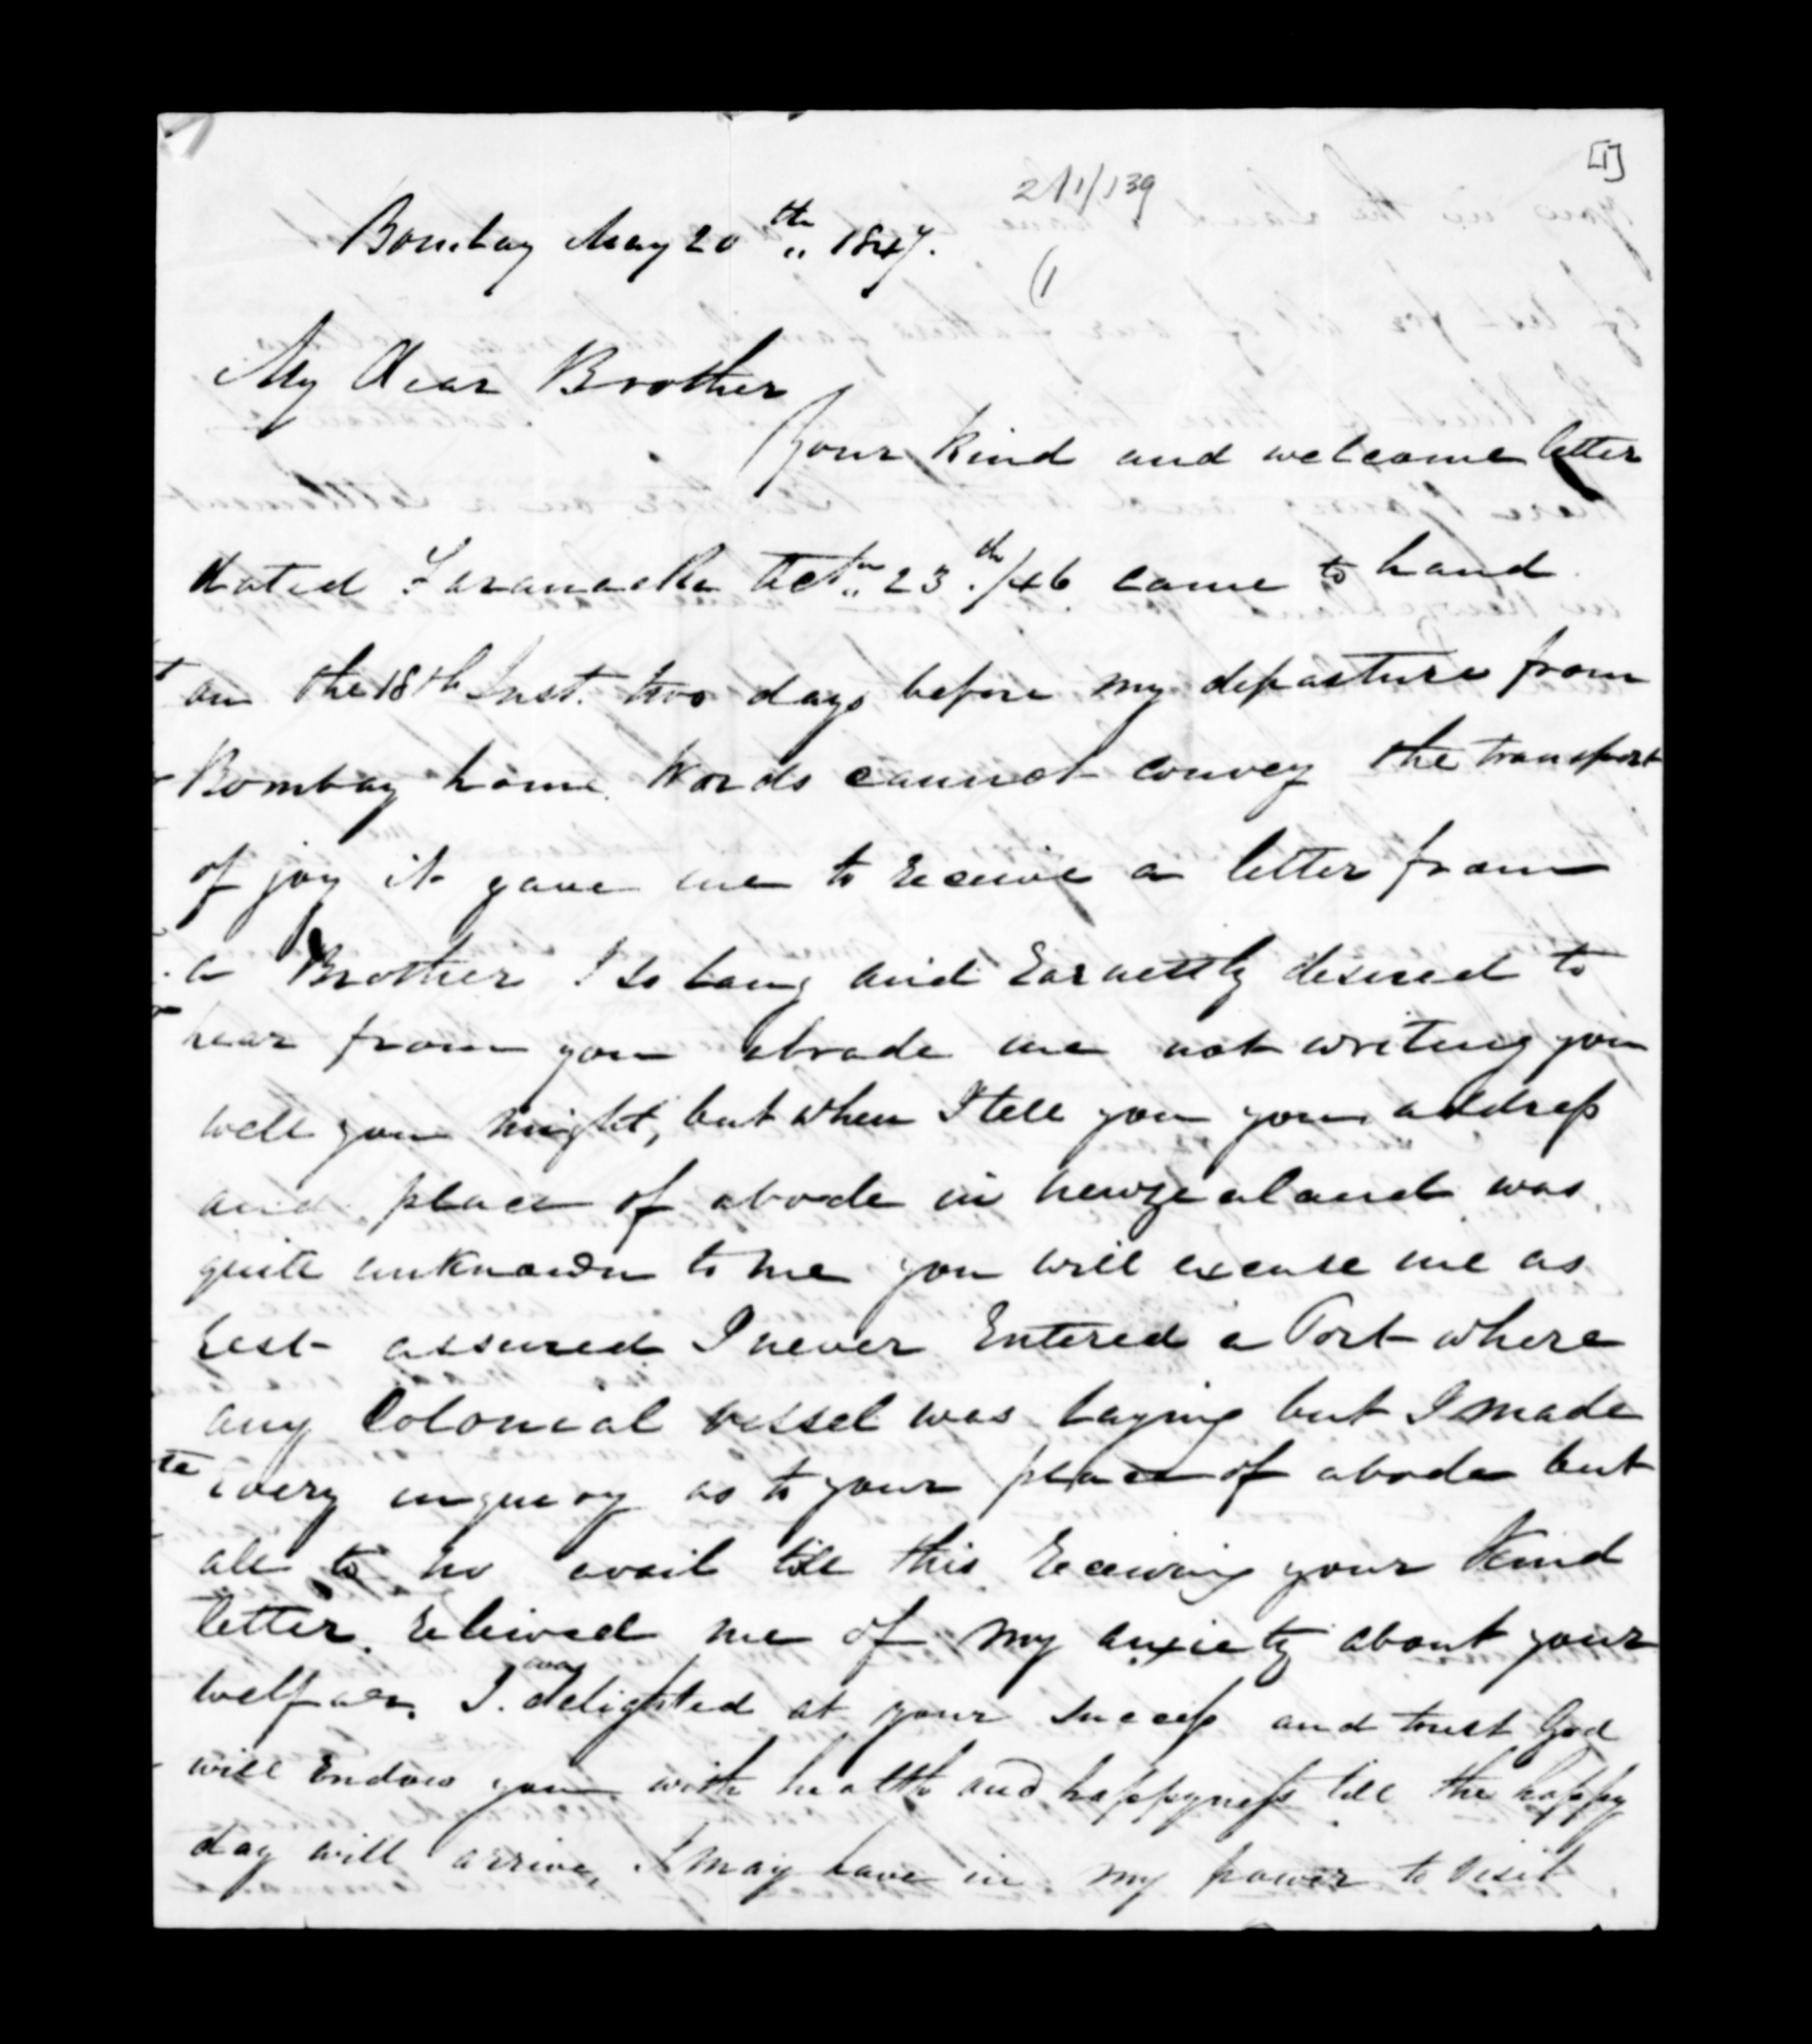 [1]
211/139
Bombay May 20th 1847.
(1
My Dear Brother
Your kind and welcome letter
dated Taranacka Octr 23th/46 came to hand
on the 18th Inst. two days before my departure from
Bombay home. Words cannot convey the transport
of joy it gave me to receive a letter from
a Brother I so long and Earnestly desired to
hear from you abrade me not writing you
well you might, but when I tell you your address
and place of abode in newzealand was
quite unknown to me you will excuse me as
rest assured I never Entered a Port where
any Colonial vessel was laying but I made
Every inquiry as to your place of abode but
all to no avail till this Receiving your kind
letter. Relieved me of my anxiety about your
welfare. I was delighted at your success and trust God
will Endow you with health and happyness till the happy
day will arrive, I may have in my power to visit